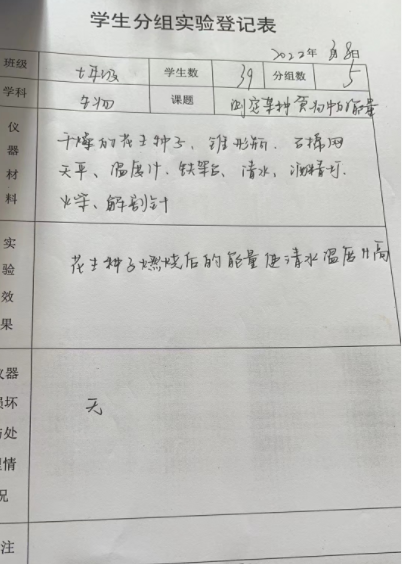 学生分组实验登记表
2022年3月8日
班级 七年级 学生数 39 分组数 5
学科 生物 课题 测定某种食物中的能量
仪器材料 干燥的花生种子、锥形瓶、石棉网
天平、温度计、铁架台、清水、酒精灯、
火柴、解剖针
实验效果 花生种子燃烧后的能量使清水温度升高
仪器损坏与处理情况 无
注